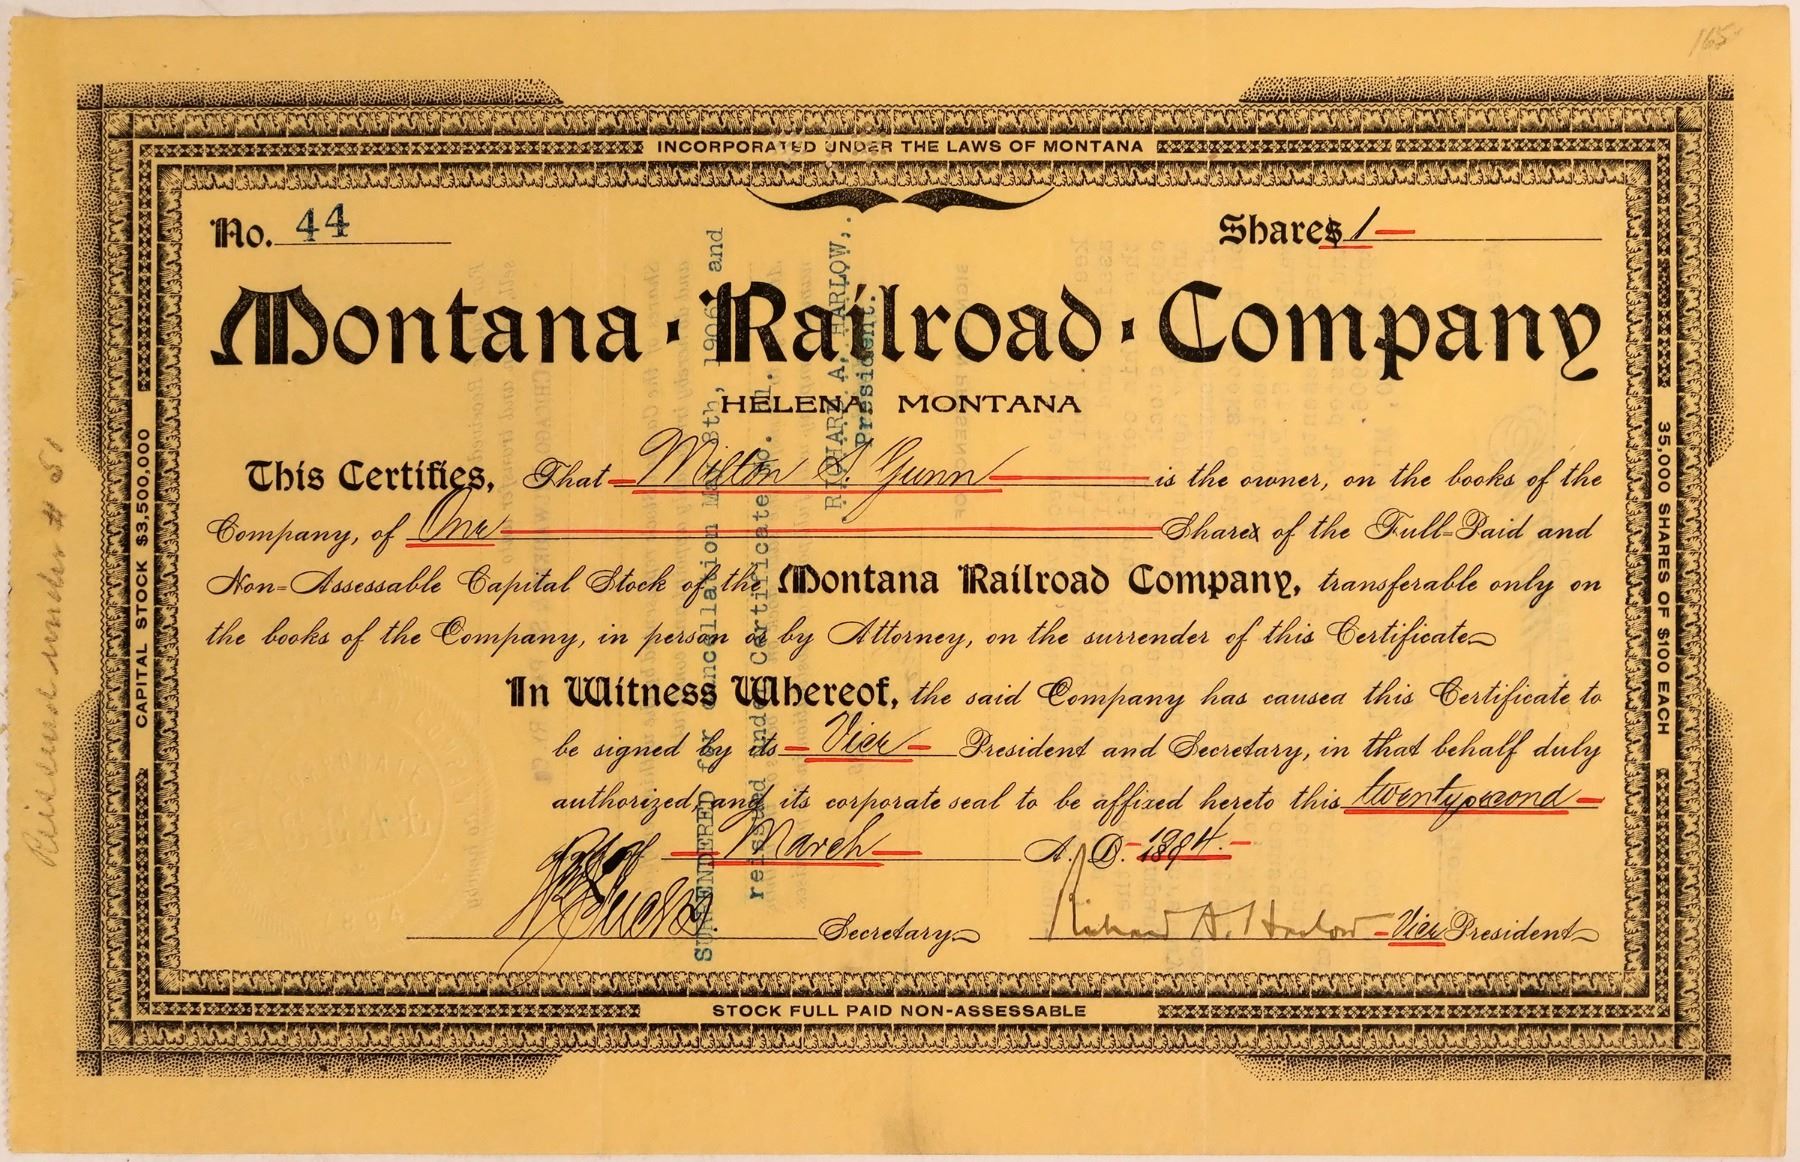 165
INCORPORATED UNDER THE LAWS OF MONTANA
No. 44
Shares 1
Montana · Railroad · Company
HELENA MONTANA
This Certifies, That Milton S Gunn is the owner, on the books of the
Company, of One Share of the Full-Paid and
Non-Assessable Capital Stock of the Montana Railroad Company, transferable only on
the books of the Company, in person or by Attorney, on the surrender of this Certificate
In Witness Whereof, the said Company has caused this Certificate to
be signed by its Vice President and Secretary, in that behalf duly
authorized, and its corporate seal to be affixed hereto this twenty second
day of March A. D. 1904.
Secretary
Richard A. Harlow Vice President
STOCK FULL PAID NON-ASSESSABLE
CAPITAL STOCK $3,500,000
35,000 SHARES OF $100 EACH
SURRENDERED for cancellation May 8th, 1906, and
reissued under Certificate No. 51.
RICHARD A. HARLOW,
President.
Reissued under # 51